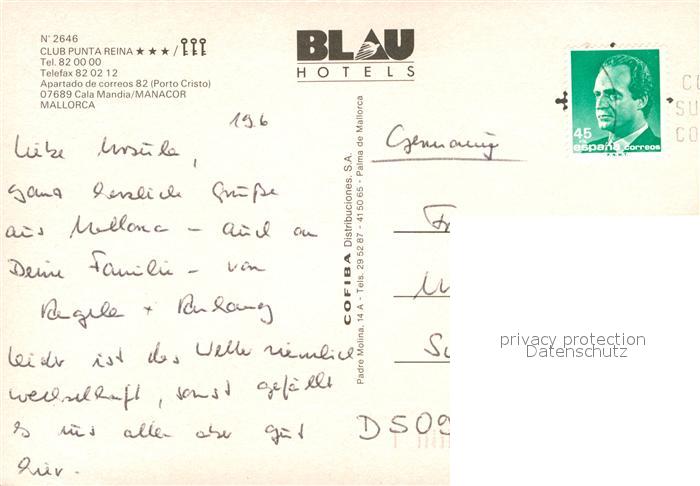 N° 2646
CLUB PUNTA REINA ★★★ /
Tel. 82 00 00
Telefax 82 02 12
Apartado de correos 82 (Porto Cristo)
07689 Cala Mandia/MANACOR
MALLORCA
BLAU
HOTELS
45
españa correos
CO
SU
CO
19.6
Liebe Ursula,
ganz herzliche Grüße
aus Mallorca – auch an
Deine Familie – von
Angela +
Leider ist das Wetter ziemlich
wechselhaft, sonst gefällt
es uns aber gut
hier.
COFIBA Distribuciones, S.A.
Padre Molina, 14 A - Tels. 29 52 87 - 41 50 65 - Palma de Mallorca
Germany
Fr
U
Su
D 509
privacy protection
Datenschutz